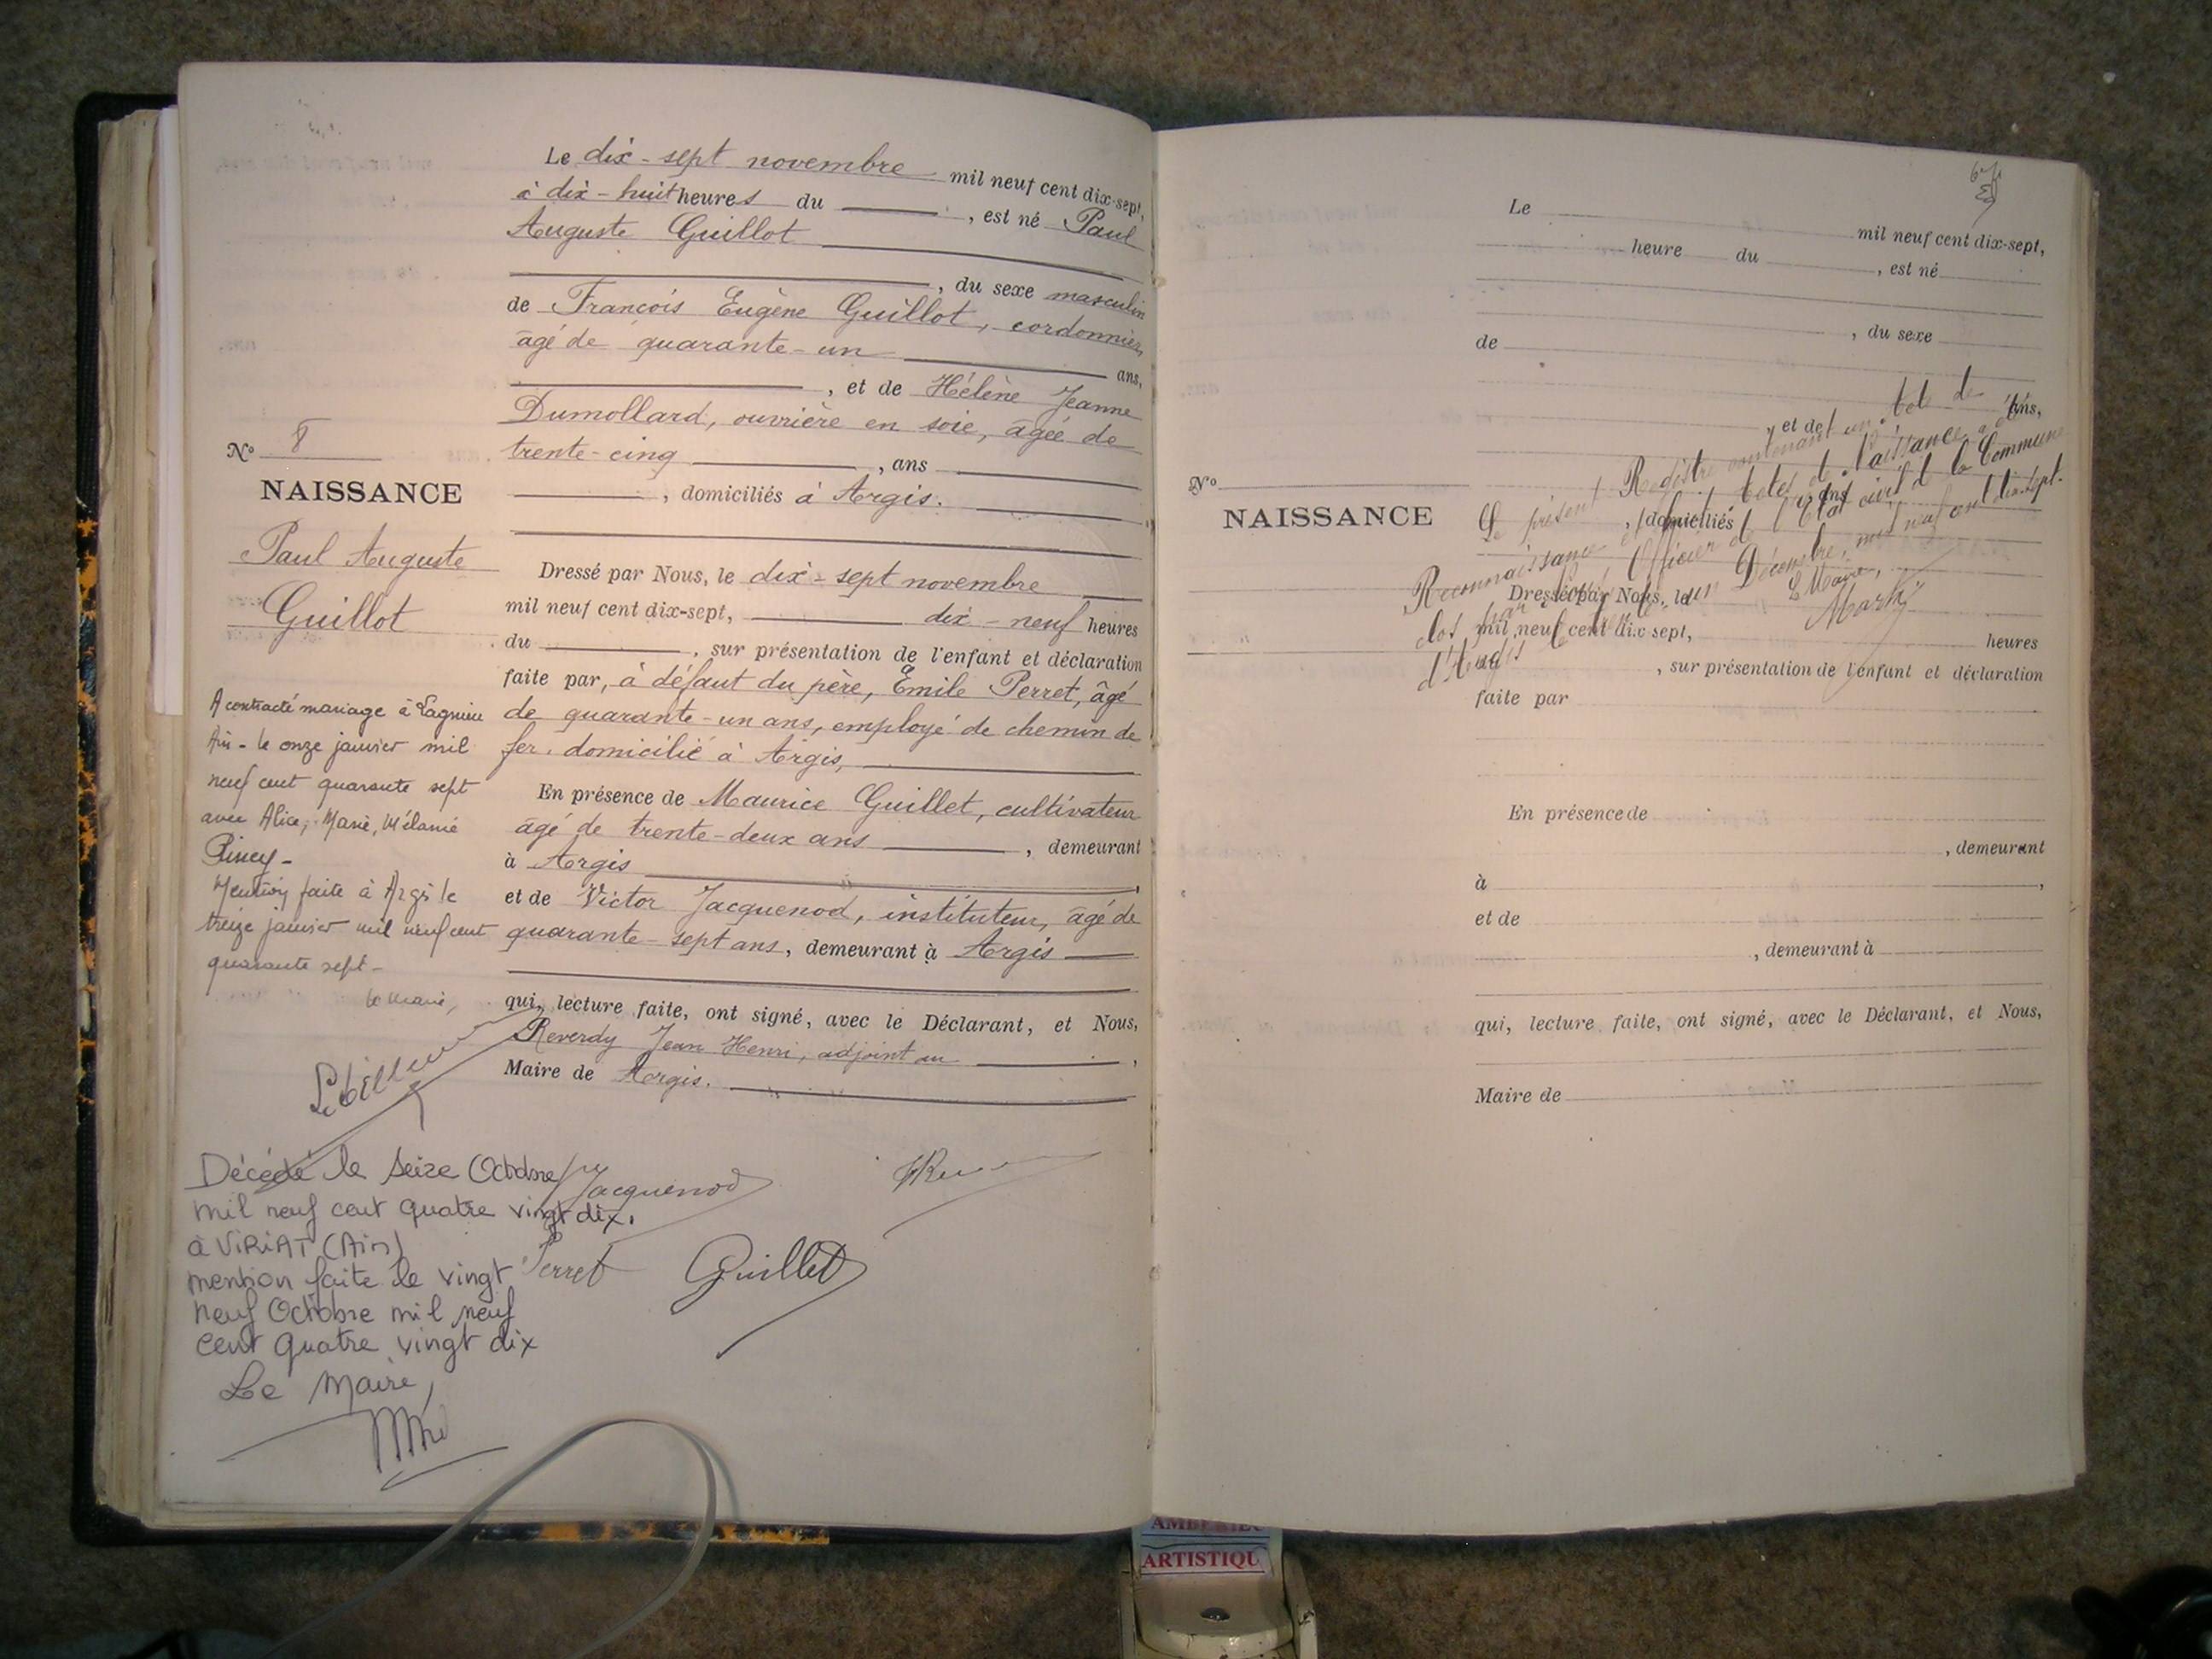 Le dix-sept novembre mil neuf cent dix-sept,
à dix-huit heures du , est né Paul
Auguste Guillot
, du sexe masculin
de François Eugène Guillot, cordonnier,
âgé de quarante-un ans,
, et de Hélène Jeanne
Dumollard, ouvrière en soie, âgée de
trente-cinq , ans
, domiciliés à Argis.
Nº 8
NAISSANCE
Paul Auguste
Guillot
Dressé par Nous, le dix-sept novembre
mil neuf cent dix-sept, dix-neuf heures
du , sur présentation de l'enfant et déclaration
faite par, à défaut du père, Emile Perret, âgé
de quarante-un ans, employé de chemin de
fer, domicilié à Argis,
En présence de Maurice Guillet, cultivateur
âgé de trente-deux ans , demeurant
à Argis ,
et de Victor Jacquenod, instituteur, âgé de
quarante-sept ans, demeurant à Argis
qui, lecture faite, ont signé, avec le Déclarant, et Nous,
Reverdy Jean Henri, adjoint au ,
Maire de Argis.
A contracté mariage à Lagnieu
Ain - le onze janvier mil
neuf cent quarante sept
avec Alice, Marie, Mélanie
Mention faite à Argis le
treize janvier mil neuf cent
quarante sept -
le maire,
Décédé le seize Octobre
mil neuf cent quatre vingt dix.
à VIRIAT (Ain)
mention faite le vingt
neuf Octobre mil neuf
cent quatre vingt dix
Le Maire,
Jacquenod
Perret Guillet
Le mil neuf cent dix-sept,
heure du , est né
, du sexe
de
, et de ans,
Nº
NAISSANCE
, ans
, domiciliés
Dressé par Nous, le
mil neuf cent dix-sept, heures
, sur présentation de l'enfant et déclaration
faite par
En présence de
, demeurant
à ,
et de
, demeurant à
qui, lecture faite, ont signé, avec le Déclarant, et Nous,
Maire de
Le présent Registre contenant
Reconnaissance et Naissance a été
clos par Officier de l'Etat civil de la Commune
d'Argis Décembre, mil neuf cent dix-sept.
Le Maire,
ARTISTIQU